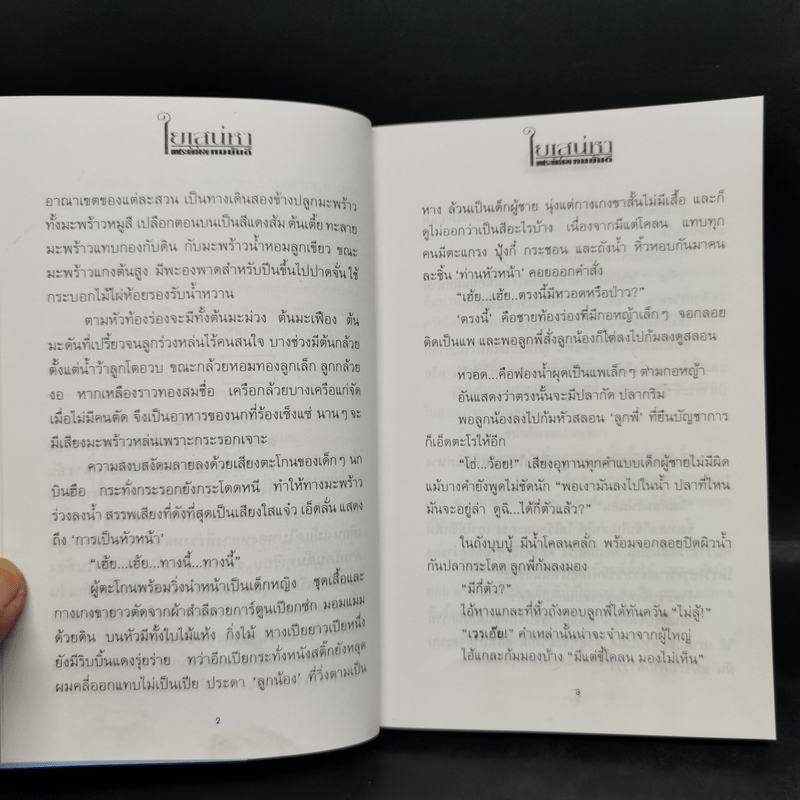 ใยเสน่หา
อาณาเขตของแต่ละสวน เป็นทางเดินสองข้างปลูกมะพร้าว
ทั้งมะพร้าวหมูสี เปลือกตอนบนเป็นสีแดงส้ม ต้นเตี้ย ทะลาย
มะพร้าวแทบกองกับดิน กับมะพร้าวน้ำหอมลูกเขียว ขณะ
มะพร้าวแกงต้นสูง มีพะองพาดสำหรับปีนขึ้นไปปาดจั่น ใช้
กระบอกไม้ไผ่ห้อยรองรับน้ำหวาน
ตามหัวท้องร่องจะมีทั้งต้นมะม่วง ต้นมะเฟือง ต้น
มะดันที่เปรี้ยวจนลูกร่วงหล่นไร้คนสนใจ บางช่วงมีต้นกล้วย
ตั้งแต่น้ำว้าลูกโตอวบ ขณะกล้วยหอมทองลูกเล็ก ลูกกล้วย
งอ หากเหลืองราวทองสมชื่อ เครือกล้วยบางเครือแก่จัด
เมื่อไม่มีคนตัด จึงเป็นอาหารของนกที่ร้องเซ็งแซ่ นานๆ จะ
มีเสียงมะพร้าวหล่นเพราะกระรอกเจาะ
ความสงบสงัดมลายลงด้วยเสียงตะโกนของเด็กๆ นก
บินฮือ กระทั่งกระรอกยังกระโดดหนี ทำให้ทางมะพร้าว
ร่วงลงน้ำ สรรพเสียงที่ดังที่สุดเป็นเสียงใสแจ๋ว เอ็ดลั่น แสดง
ถึง ‘การเป็นหัวหน้า’
“เฮ้ย...เฮ้ย...ทางนี้...ทางนี้”
ผู้ตะโกนพร้อมวิ่งนำหน้าเป็นเด็กหญิง ชุดเสื้อและ
กางเกงขายาวตัดจากผ้าสำลีลายการ์ตูนเปียกซ่ก มอมแมม
ด้วยดิน บนหัวมีทั้งใบไม้แห้ง กิ่งไม้ หางเปียยาวเปียหนึ่ง
ยังมีริบบิ้นแดงรุ่ยร่าย ทว่าอีกเปียกระทั่งหนังสติ๊กยังหลุด
ผมคลี่ออกแทบไม่เป็นเปีย ประดา ‘ลูกน้อง’ ที่วิ่งตามเป็น
2
ใยเสน่หา
หาง ล้วนเป็นเด็กผู้ชาย นุ่งแต่กางเกงขาสั้นไม่มีเสื้อ และก็
ดูไม่ออกว่าเป็นสีอะไรบ้าง เนื่องจากมีแต่โคลน แทบทุก
คนมีตะแกรง ปุ้งกี๋ กระชอน และถังน้ำ หิ้วหอบกันมาคน
ละชิ้น ‘ท่านหัวหน้า’ คอยออกคำสั่ง
“เฮ้ย...เฮ้ย..ตรงนี้มีหวอดหรือป่าว?”
‘ตรงนี้’ คือชายท้องร่องที่มีกอหญ้าเล็กๆ จอกลอย
ติดเป็นแพ และพอลูกพี่สั่งลูกน้องก็ไต่ลงไปก้มลงดูสลอน
หวอด...คือฟองน้ำผุดเป็นแพเล็กๆ ตามกอหญ้า
อันแสดงว่าตรงนั้นจะมีปลากัด ปลากริม
พอลูกน้องลงไปก้มหัวสลอน ‘ลูกพี่’ ที่ยืนบัญชาการ
ก็เอ็ดตะโรให้อีก
“โธ่...ว้อย!” เสียงอุทานทุกคำแบบเด็กผู้ชายไม่มีผิด
แม้บางคำยังพูดไม่ชัดนัก “พอเงามันลงไปในน้ำ ปลาที่ไหน
มันจะอยู่ล่า ดูฉิ...ได้กี่ตัวแล้ว?”
ในถังบุบบู้ มีน้ำโคลนคลั่ก พร้อมจอกลอยปิดผิวน้ำ
กันปลากระโดด ลูกพี่ก้มลงมอง
“มีกี่ตัว?”
ไอ้หางแกละที่หิ้วถังตอบลูกพี่ได้ทันควัน “ไม่ลู้!”
“เวรเอ๊ย!” คำเหล่านั้นน่าจะจำมาจากผู้ใหญ่
ไอ้แกละก้มมองบ้าง “มีแต่ขี้โคลน มองไม่เห็น”
3